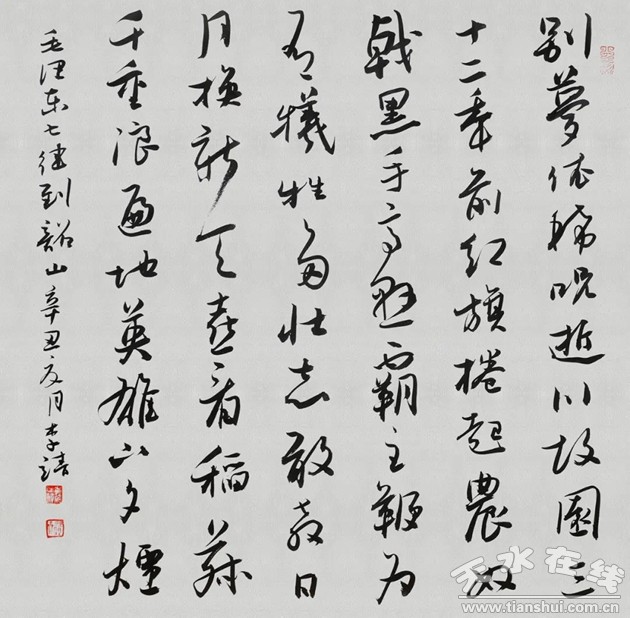 别夢依稀呪逝川故園三
十二年前红旗捲起農奴
戟黑手高悬霸主鞭为
有犠牲多壮志敢教日
月换新天喜看稻菽
千重浪遍地英雄下夕煙
毛泽东七律到韶山辛丑夏月李靖
天水在线
www.tianshui.com.cn